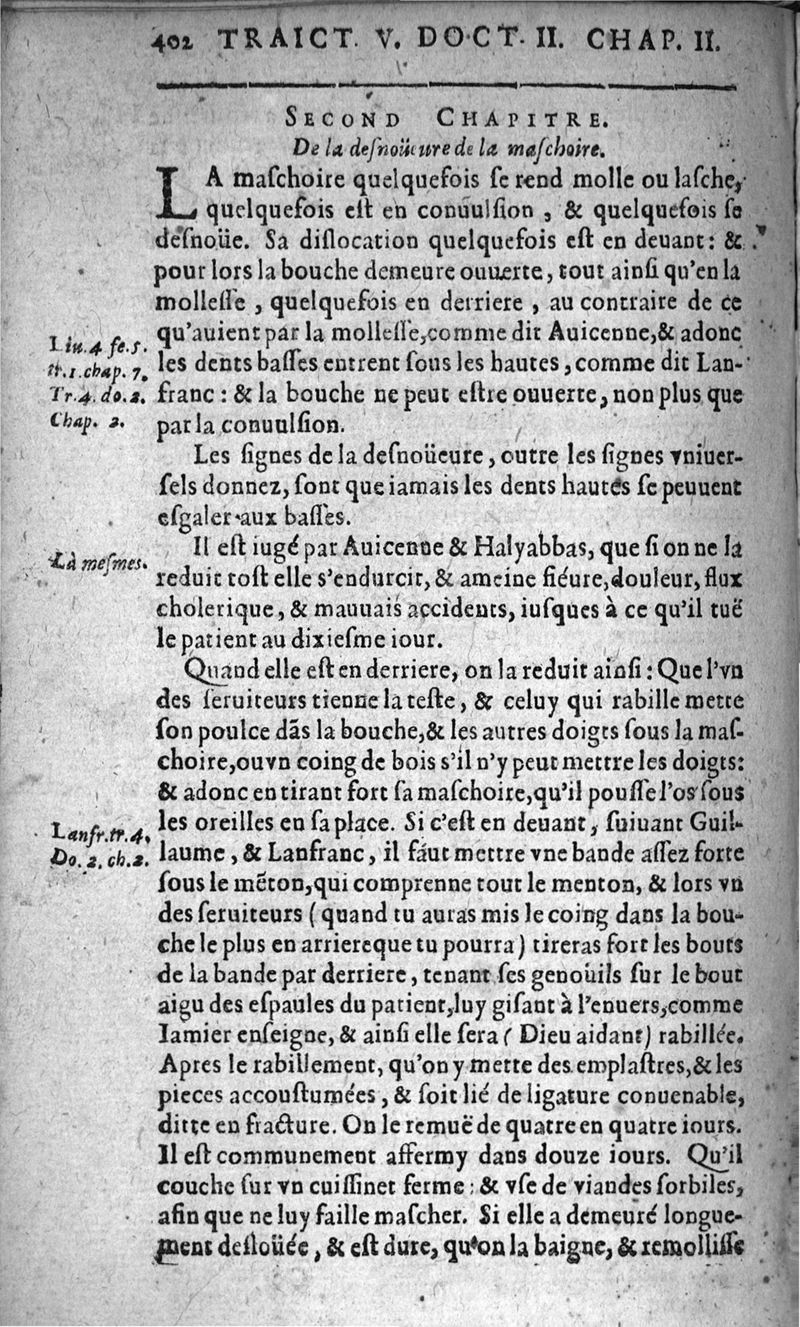 402 TRAICT. V. DOCT. II. CHAP. II.
SECOND CHAPITRE.
De la deſnoüeure de la maſchoire.
LA maſchoire quelquefois ſe rend molle ou laſche,
quelquefois eſt en conuulſion, & quelquefois ſe
deſnoüe. Sa diſlocation quelquefois eſt en deuant: &
pour lors la bouche demeure ouuerte, tout ainſi qu'en la
molleſſe, quelquefois en derriere, au contraire de ce
qu'auient par la molleſſe, comme dit Auicenne, & adonc
les dents baſſes entrent ſous les hautes, comme dit Lan-
franc: & la bouche ne peut eſtre ouuerte, non plus que
par la conuulſion.
Liu. 4 fe. 5.
tt. 1. chap. 7.
Tr. 4. do. 2.
Chap. 2.
Les ſignes de la deſnoüeure, outre les ſignes vniuer-
ſels donnez, ſont que iamais les dents hautes ſe peuuent
eſgaler aux baſſes.
Il eſt iugé par Auicenne & Halyabbas, que ſi on ne la
reduit toſt elle s'endurcit, & ameine fiéure, douleur, flux
cholerique, & mauuais accidents, iuſques à ce qu'il tuë
le patient au dixieſme iour.
Là meſmes.
Quand elle eſt en derriere, on la reduit ainſi: Que l'vn
des ſeruiteurs tienne la teſte, & celuy qui rabille mette
ſon poulce dãs la bouche, & les autres doigts ſous la maſ-
choire, ou vn coing de bois s'il n'y peut mettre les doigts:
& adonc en tirant fort ſa maſchoire, qu'il pouſſe l'os ſous
les oreilles en ſa place. Si c'eſt en deuant, ſuiuant Guil-
laume, & Lanfranc, il faut mettre vne bande aſſez forte
ſous le mẽton, qui comprenne tout le menton, & lors vn
des ſeruiteurs (quand tu auras mis le coing dans la bou-
che le plus en arriere que tu pourra) tireras fort les bouts
de la bande par derriere, tenant ſes genoüils ſur le bout
aigu des eſpaules du patient, luy giſant à l'enuers, comme
Iamier enſeigne, & ainſi elle ſera (Dieu aidant) rabillée.
Lanfr. tr. 4.
Do. 2. ch. 2.
Apres le rabillement, qu'on y mette des emplaſtres, & les
pieces accouſtumées, & ſoit lié de ligature conuenable,
ditte en fracture. On le remuë de quatre en quatre iours.
Il eſt communement affermy dans douze iours. Qu'il
couche ſur vn cuiſſinet ferme: & vſe de viandes ſorbiles,
afin que ne luy faille maſcher. Si elle a demeuré longue-
ment deſloüée, & eſt dure, qu'on la baigne, & remolliſſe